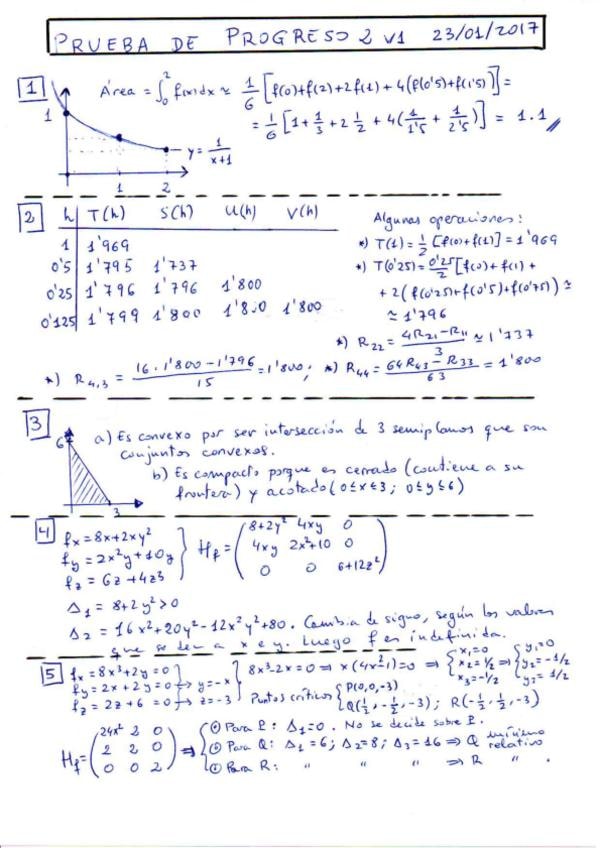 PRUEBA DE PROGRESO 2 v1 23/01/2017
1
Área = ∫₀² f(x)dx ≈ 1/6 [f(0)+f(2)+2f(1)+4(f(0'5)+f(1'5))] =
= 1/6 [1+1/3+2 1/2+4(1/1'5+1/2'5)] = 1.1
1
y = 1/(x+1)
1 2
2
h T(h) S(h) U(h) V(h)
1 1'969
0'5 1'795 1'737
0'25 1'796 1'796 1'800
0'125 1'799 1'800 1'800 1'800
Algunas operaciones:
*) T(1) = 1/2 [f(0)+f(1)] = 1'969
*) T(0'25) = 0'25/2 [f(0)+f(1)+
+2(f(0'25)+f(0'5)+f(0'75)) ≈
≈ 1'796
*) R₂₂ = (4R₂₁-R₁₁)/3 ≈ 1'737
*) R₄,₃ = (16·1'800-1'796)/15 = 1'800; *) R₄₄ = (64R₄₃-R₃₃)/63 = 1'800
3
6
3
a) Es convexo por ser intersección de 3 semiplanos que son
conjuntos convexos.
b) Es compacto porque es cerrado (contiene a su
frontera) y acotado (0≤x≤3; 0≤y≤6)
4
fx = 8x+2xy²
fy = 2x²y+10y
fz = 6z+4z³
Hf = (8+2y² 4xy 0
4xy 2x²+10 0
0 0 6+12z²)
Δ₁ = 8+2y²>0
Δ₂ = 16x²+20y²-12x²y²+80. Cambia de signo, según los valores
que se den a x e y. Luego f es indefinida.
5
fx = 8x³+2y=0
fy = 2x+2y=0 → y=-x
fz = 2z+6=0 → z=-3
8x³-2x=0 ⇒ x(4x²-1)=0 ⇒ x₁=0 x₂=1/2 x₃=-1/2 ⇒ y₁=0 y₂=-1/2 y₃=1/2
Puntos críticos P(0,0,-3)
Q(1/2,-1/2,-3); R(-1/2,1/2,-3)
Hf = (24x² 2 0
2 2 0
0 0 2) ⇒
① Para P: Δ₁=0. No se decide sobre P.
② Para Q: Δ₁=6; Δ₂=8; Δ₃=16 ⇒ Q mínimo relativo
③ Para R: " " " ⇒ R " .